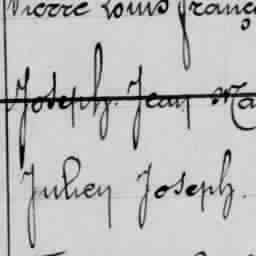 Pierre Louis Franç
Joseph Jean Ma
Julien Joseph.